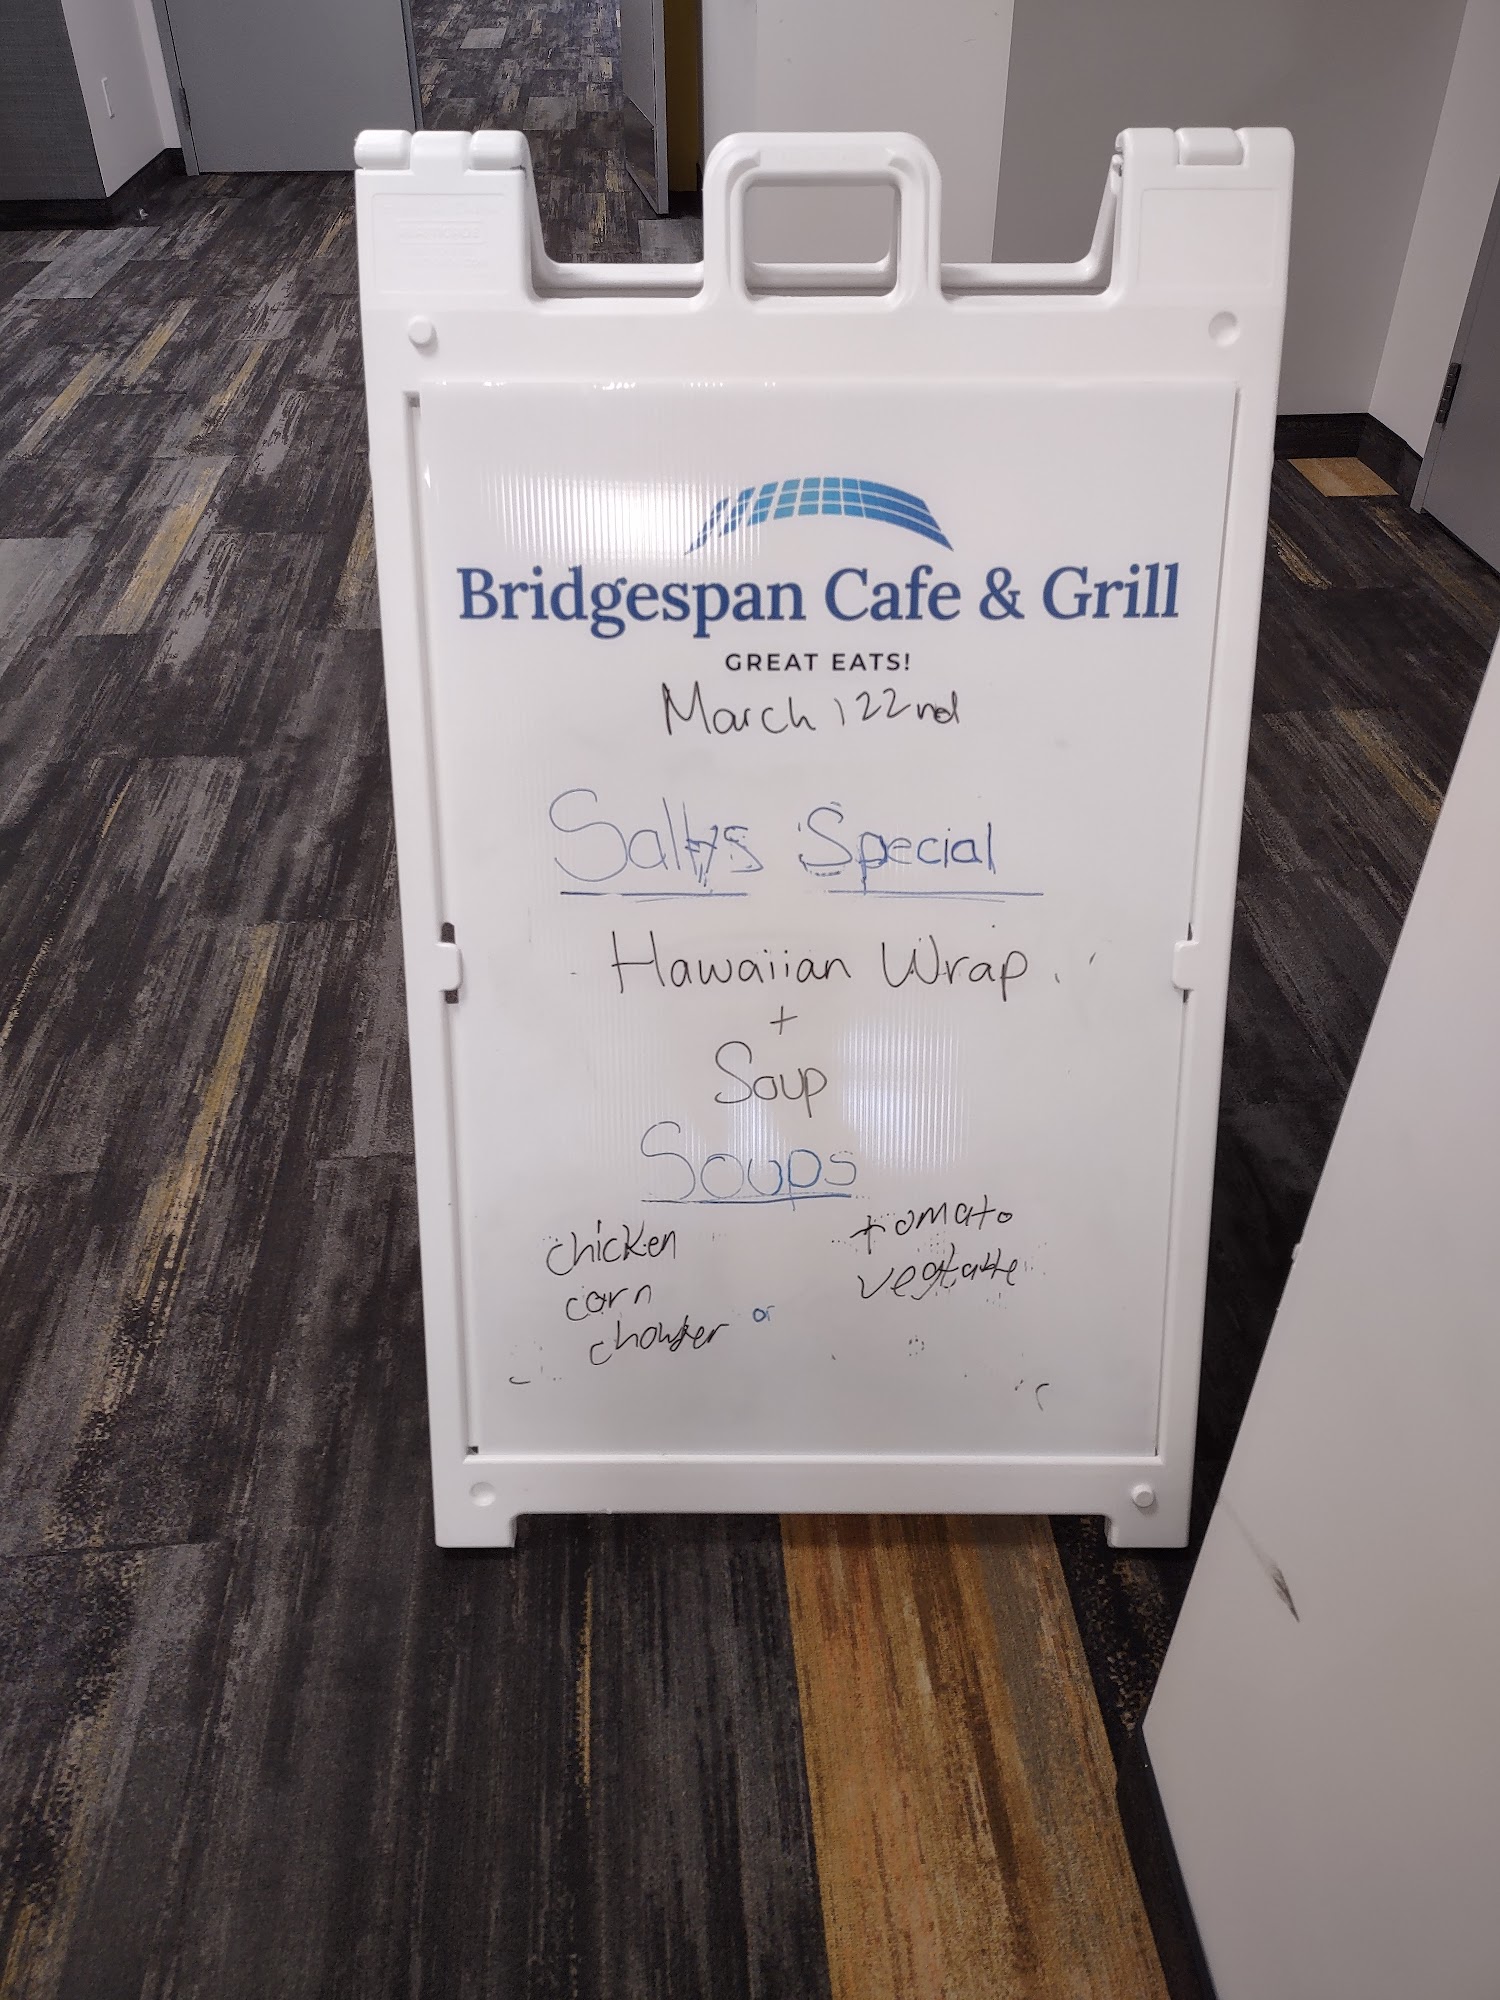 Bridgespan Cafe & Grill
GREAT EATS!
March, 22nd
Saltys Special
Hawaiian Wrap
+
Soup
Soups
chicken
corn
chowder or
tomato